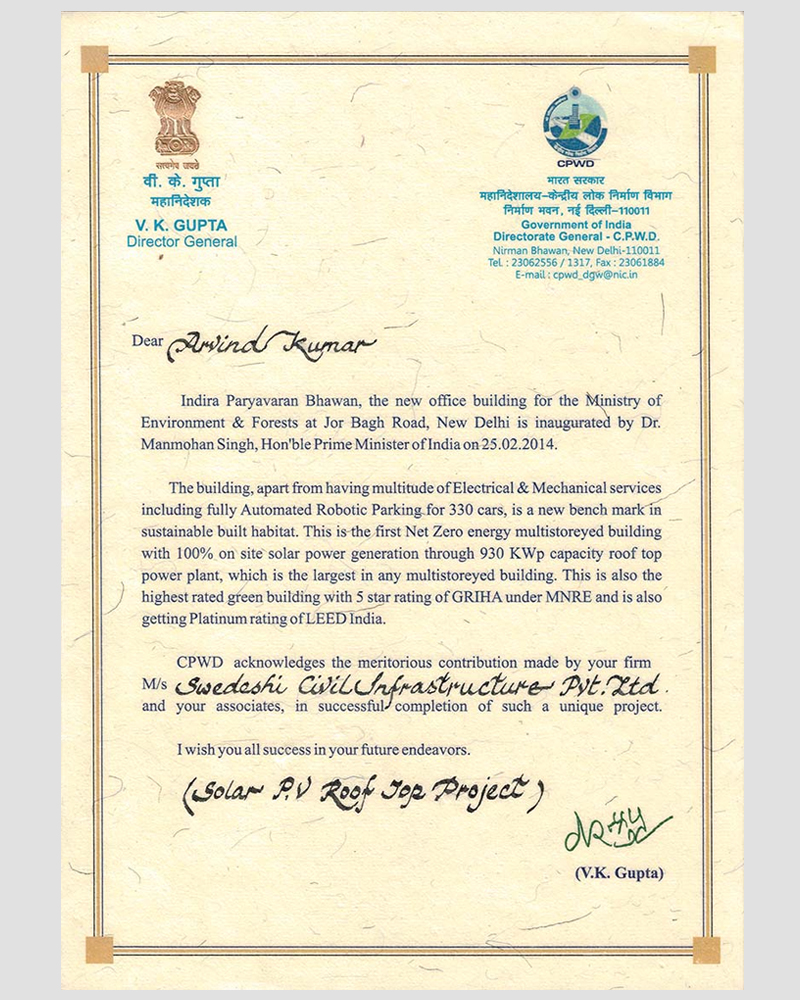 सत्यमेव जयते
वी. के. गुप्ता
महानिदेशक
V. K. GUPTA
Director General
CPWD
भारत सरकार
महानिदेशालय–केन्द्रीय लोक निर्माण विभाग
निर्माण भवन, नई दिल्ली–110011
Government of India
Directorate General - C.P.W.D.
Nirman Bhawan, New Delhi-110011
Tel. : 23062556 / 1317, Fax : 23061884
E-mail : cpwd_dgw@nic.in
Dear Arvind Kumar
Indira Paryavaran Bhawan, the new office building for the Ministry of
Environment & Forests at Jor Bagh Road, New Delhi is inaugurated by Dr.
Manmohan Singh, Hon'ble Prime Minister of India on 25.02.2014.
The building, apart from having multitude of Electrical & Mechanical services
including fully Automated Robotic Parking for 330 cars, is a new bench mark in
sustainable built habitat. This is the first Net Zero energy multistoreyed building
with 100% on site solar power generation through 930 KWp capacity roof top
power plant, which is the largest in any multistoreyed building. This is also the
highest rated green building with 5 star rating of GRIHA under MNRE and is also
getting Platinum rating of LEED India.
CPWD acknowledges the meritorious contribution made by your firm
M/s Swedeshi Civil Infrastructure Pvt. Ltd.
and your associates, in successful completion of such a unique project.
I wish you all success in your future endeavors.
(Solar P.V Roof Top Project)
(V.K. Gupta)